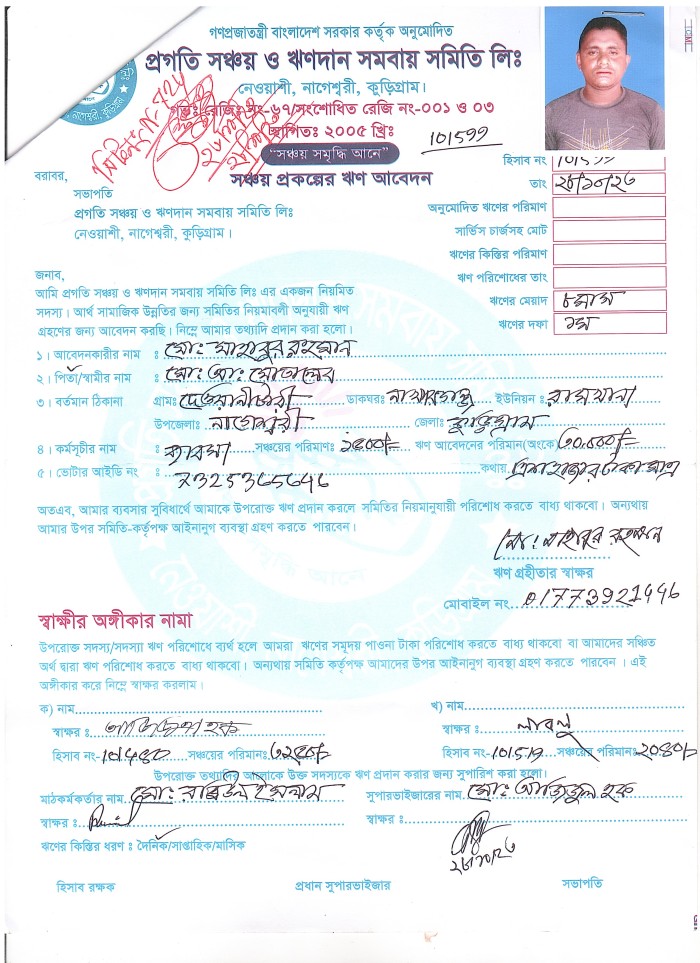 গণপ্রজাতন্ত্রী বাংলাদেশ সরকার কর্তৃক অনুমোদিত
প্রগতি সঞ্চয় ও ঋণদান সমবায় সমিতি লিঃ
নেওয়াশী, নাগেশ্বরী, কুড়িগ্রাম।
রেজি: নং-৬৭/সংশোধিত রেজি নং-০০১ ও ০৩
স্থাপিতঃ ২০০৫ খ্রিঃ
101599
“সঞ্চয় সমৃদ্ধি আনে”
সঞ্চয় প্রকল্পের ঋণ আবেদন
হিসাব নং 101599
তাং ২৮/১০/২৩
অনুমোদিত ঋণের পরিমাণ
সার্ভিস চার্জসহ মোট
ঋণের কিস্তির পরিমাণ
ঋণ পরিশোধের তাং
ঋণের মেয়াদ ৮মাস
ঋণের দফা ১ম
বরাবর,
সভাপতি
প্রগতি সঞ্চয় ও ঋণদান সমবায় সমিতি লিঃ
নেওয়াশী, নাগেশ্বরী, কুড়িগ্রাম।
জনাব,
আমি প্রগতি সঞ্চয় ও ঋণদান সমবায় সমিতি লিঃ এর একজন নিয়মিত
সদস্য। আর্থ সামাজিক উন্নতির জন্য সমিতির নিয়মাবলী অনুযায়ী ঋণ
গ্রহণের জন্য আবেদন করছি। নিম্নে আমার তথ্যাদি প্রদান করা হলো।
১। আবেদনকারীর নাম : মোঃ মাহাবুর রহমান
২। পিতা/স্বামীর নাম : মোঃ আঃ মোতালেব
৩। বর্তমান ঠিকানা গ্রামঃ দেওয়ানীটারী ডাকঘরঃ ইউনিয়ন : রামখানা
উপজেলাঃ নাগেশ্বরী জেলাঃ কুড়িগ্রাম
৪। কর্মসূচীর নাম : ব্যবসা সঞ্চয়ের পরিমাণঃ ১৫০০/= ঋণ আবেদনের পরিমান(অংকে) ৩০,০০০/=
৫। ভোটার আইডি নং : 7325365646 কথায় ত্রিশ হাজার টাকা মাত্র
অতএব, আমার ব্যবসার সুবিধার্থে আমাকে উপরোক্ত ঋণ প্রদান করলে সমিতির নিয়মানুযায়ী পরিশোধ করতে বাধ্য থাকবো। অন্যথায়
আমার উপর সমিতি-কর্তৃপক্ষ আইনানুগ ব্যবস্থা গ্রহণ করতে পারবেন।
মোঃ মাহাবুর রহমান
ঋণ গ্রহীতার স্বাক্ষর
মোবাইল নং 01773921446
স্বাক্ষীর অঙ্গীকার নামা
উপরোক্ত সদস্য/সদস্যা ঋণ পরিশোধে ব্যর্থ হলে আমরা ঋণের সমূদয় পাওনা টাকা পরিশোধ করতে বাধ্য থাকবো বা আমাদের সঞ্চিত
অর্থ দ্বারা ঋণ পরিশোধ করতে বাধ্য থাকবো। অন্যথায় সমিতি কর্তৃপক্ষ আমাদের উপর আইনানুগ ব্যবস্থা গ্রহণ করতে পারবেন। এই
অঙ্গীকার করে নিম্নে স্বাক্ষর করলাম।
ক) নাম
স্বাক্ষর ঃ হক
হিসাব নং- সঞ্চয়ের পরিমানঃ
খ) নাম
স্বাক্ষর ঃ লাবলু
হিসাব নং-101519 সঞ্চয়ের পরিমানঃ ২০৪০/=
উপরোক্ত তথ্যাদির আলোকে উক্ত সদস্যকে ঋণ প্রদান করার জন্য সুপারিশ করা হলো।
মাঠকর্মকর্তার নাম মোঃ রাব্বিউল ইসলাম
সুপারভাইজারের নাম মোঃ আজিজুল হক
স্বাক্ষর ঃ
স্বাক্ষর ঃ
২৮/১০/২৩
ঋণের কিস্তির ধরণ : দৈনিক/সাপ্তাহিক/মাসিক
হিসাব রক্ষক প্রধান সুপারভাইজার সভাপতি